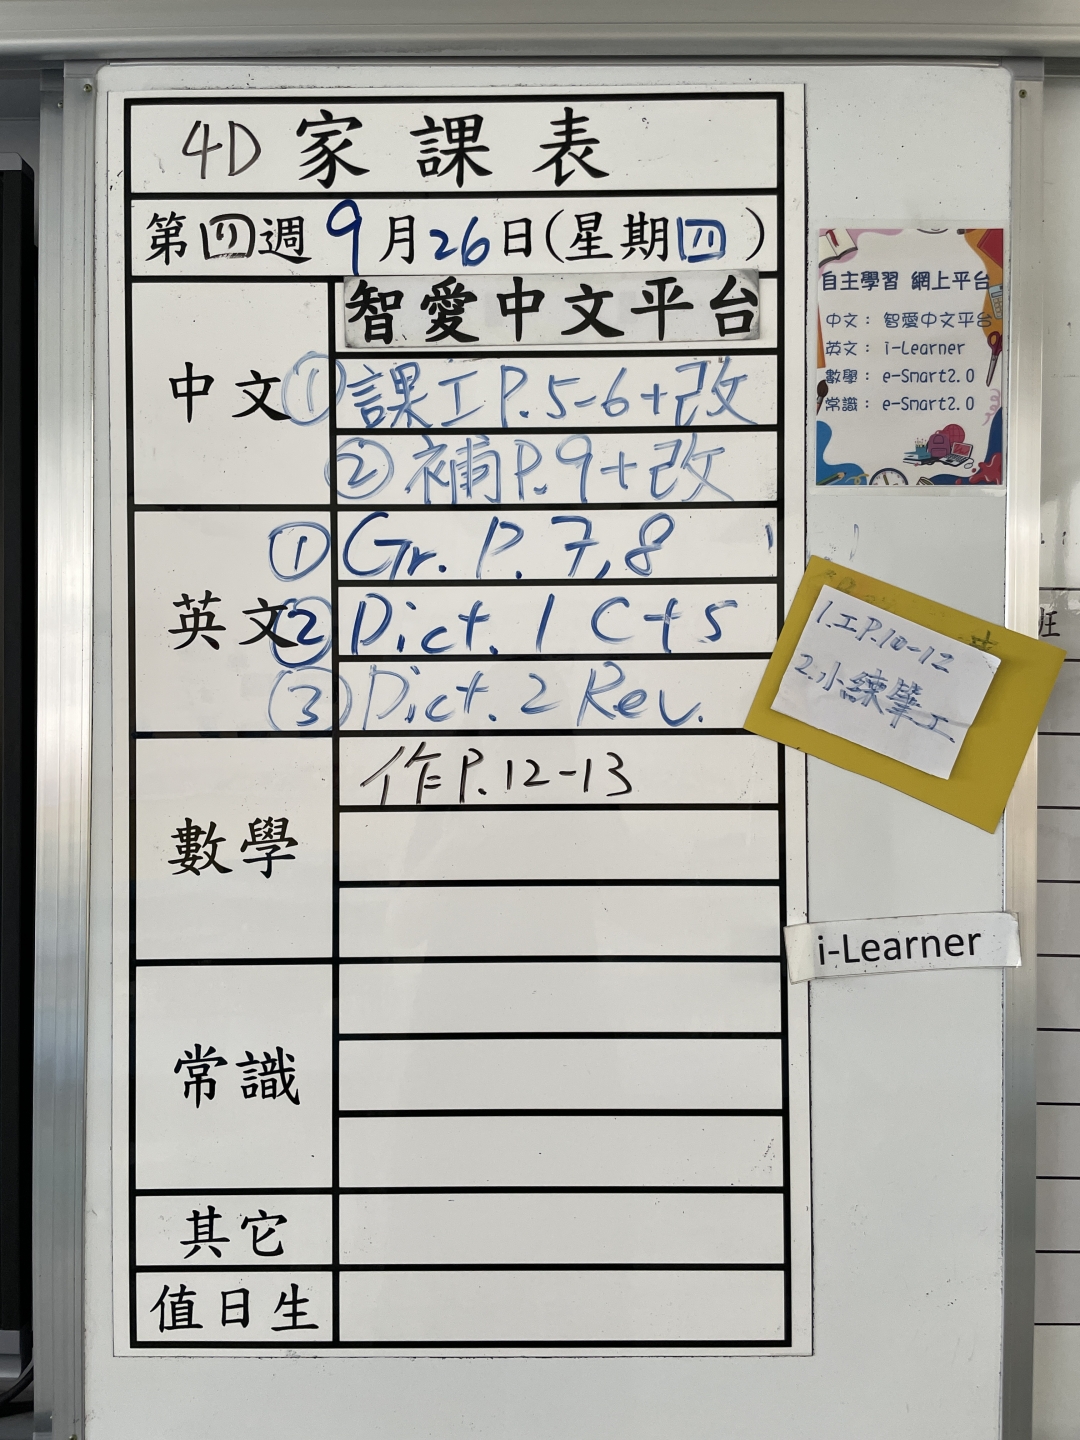 4D 家課表
第四週 9月26日(星期四)
中文
智愛中文平台
① 課工 P.5-6+改
② 補 P.9+改
英文
① Gr. P. 7,8
② Dict. 1 C+S
③ Dict. 2 Rev.
數學
作 P.12-13
常識
其它
值日生
自主學習 網上平台
中文： 智愛中文平台
英文： i-Learner
數學： e-Smart2.0
常識： e-Smart2.0
1.工P.10-12
2.小練筆工
i-Learner
班